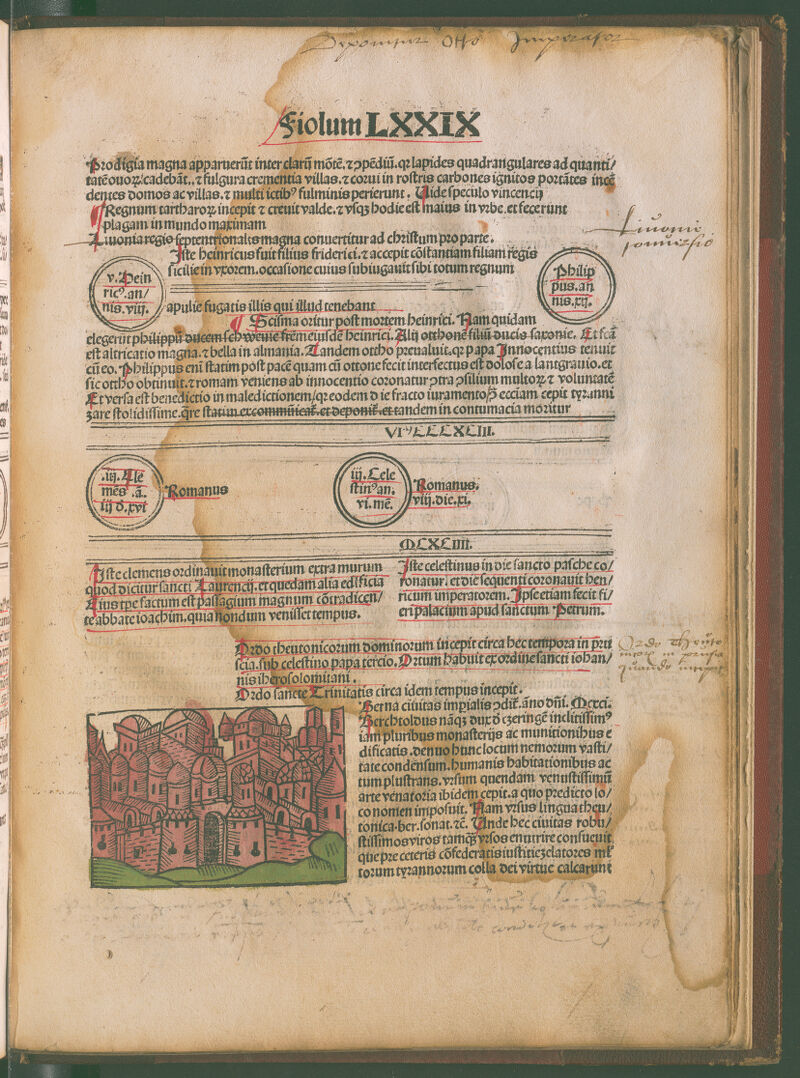 Deponitur Otto Imperator
Fiolum LXXIX
Prodigia magna apparuerūt inter clarū mōtē.⁊ ↄpēdiū.qꝛ lapides quadrangulares ad quanti/
tatē ouoꝝ cadebāt.⁊ fulgura crementia villas.⁊ corui in rostris carbones ignitos portātes incē
dentes domos ac villas.⁊ multi ictibꝰ fulminis perierunt. Uide speculo vincencij
Regnum tartharoꝝ incepit ⁊ creuit valde.⁊ vsqꝫ hodie est maius in vrbe.et fecerunt
plagam in mundo maximam
Liuonia regis septentrionalis magna conuertitur ad christum pro parte.
Liuonie
conuersio
Iste heinricus fuit filius friderici.⁊ accepit cōstantiam filiam regis
sicilie in vxorem.occasione cuius subiugauit sibi totum regnum
v.Hein
ricꝰ.an/
nis.viij.
Philip
pus.an
nis.xij.
apulie fugatis illis qui illud tenebant
Scisma oritur post mortem heinrici. Nam quidam
elegerūt philippū ducem scheweuie fr̄em eiusdē heinrici. Alij otthonē filiū ducis saxonie. Et fcā
est altricatio magna.⁊ bella in almania. Tandem ottho preualuit.qꝛ papa Innocentius tenuit
cū eo. Philippus enī statim post pacē quam cū ottone fecit interfectus est dolose a lantgrauio.et
sic ottho obtinuit.⁊ romam veniens ab innocentio coronatur ↄtra ↄsilium multoꝝ ⁊ voluntatē
Et versa est benedictio in maledictionem/qꝛ eodem die fracto iuramento ecciam cepit tyranni
zare stolidissime.q̄re statim excommūicat̄.et deponit̄.et tandem in contumacia moritur
VIꝰCCCXCIII.
.iij.Cle
mēs.ā.
iij d.xvi
Romanus
iij.Cele
stinꝰan.
vi.mē.
Romanus.
viij.die.xi.
MCXCIIII.
Iste clemens ordinauit monasterium extra murum
quod dicitur sancti Laurencij.et quedam alia edificia
Eius tpe factum est passagium magnum cōtradicen/
te abbate ioachim.quia nondum venisset tempus.
Iste celestinus in die sancto pasche co/
ronatur.et die sequenti coronauit hen/
ricum imperatorem. Ipse etiam fecit fi/
eri palacium apud sanctum Petrum.
Ordo theutonicorum dominorum incepit circa hec tempora in pru
scia.sub celestino papa tercio. Ortum habuit ex ordine sancti iohan/
nis iherosolomitani.
Ordo sancte Trinitatis circa idem tempus incepit.
Berna ciuitas imp̄ialis ↄdit̄.āno dn̄i. Mcxci.
Berchtoldus nāqꝫ dux d czeringē inclitissimꝰ
iam pluribus monasterijs ac munitionibus e
dificatis.denuo hunc locum nemorum vasti/
tate condensum.humanis habitationibus ac
tum plustrans.vrsum quendam venustissimū
arte venatoria ibidem cepit.a quo predicto lo/
co nomen imposuit. Nam vrsus lingua theu/
tonica.ber.sonat.⁊c̄. Unde hec ciuitas robu/
stissimos viros tamqꝫ vrsos enutrire consueuit
que pre ceteris cōfederatis iusticie zelatores ml̄
torum tyrannorum colla dei virtute calcarunt